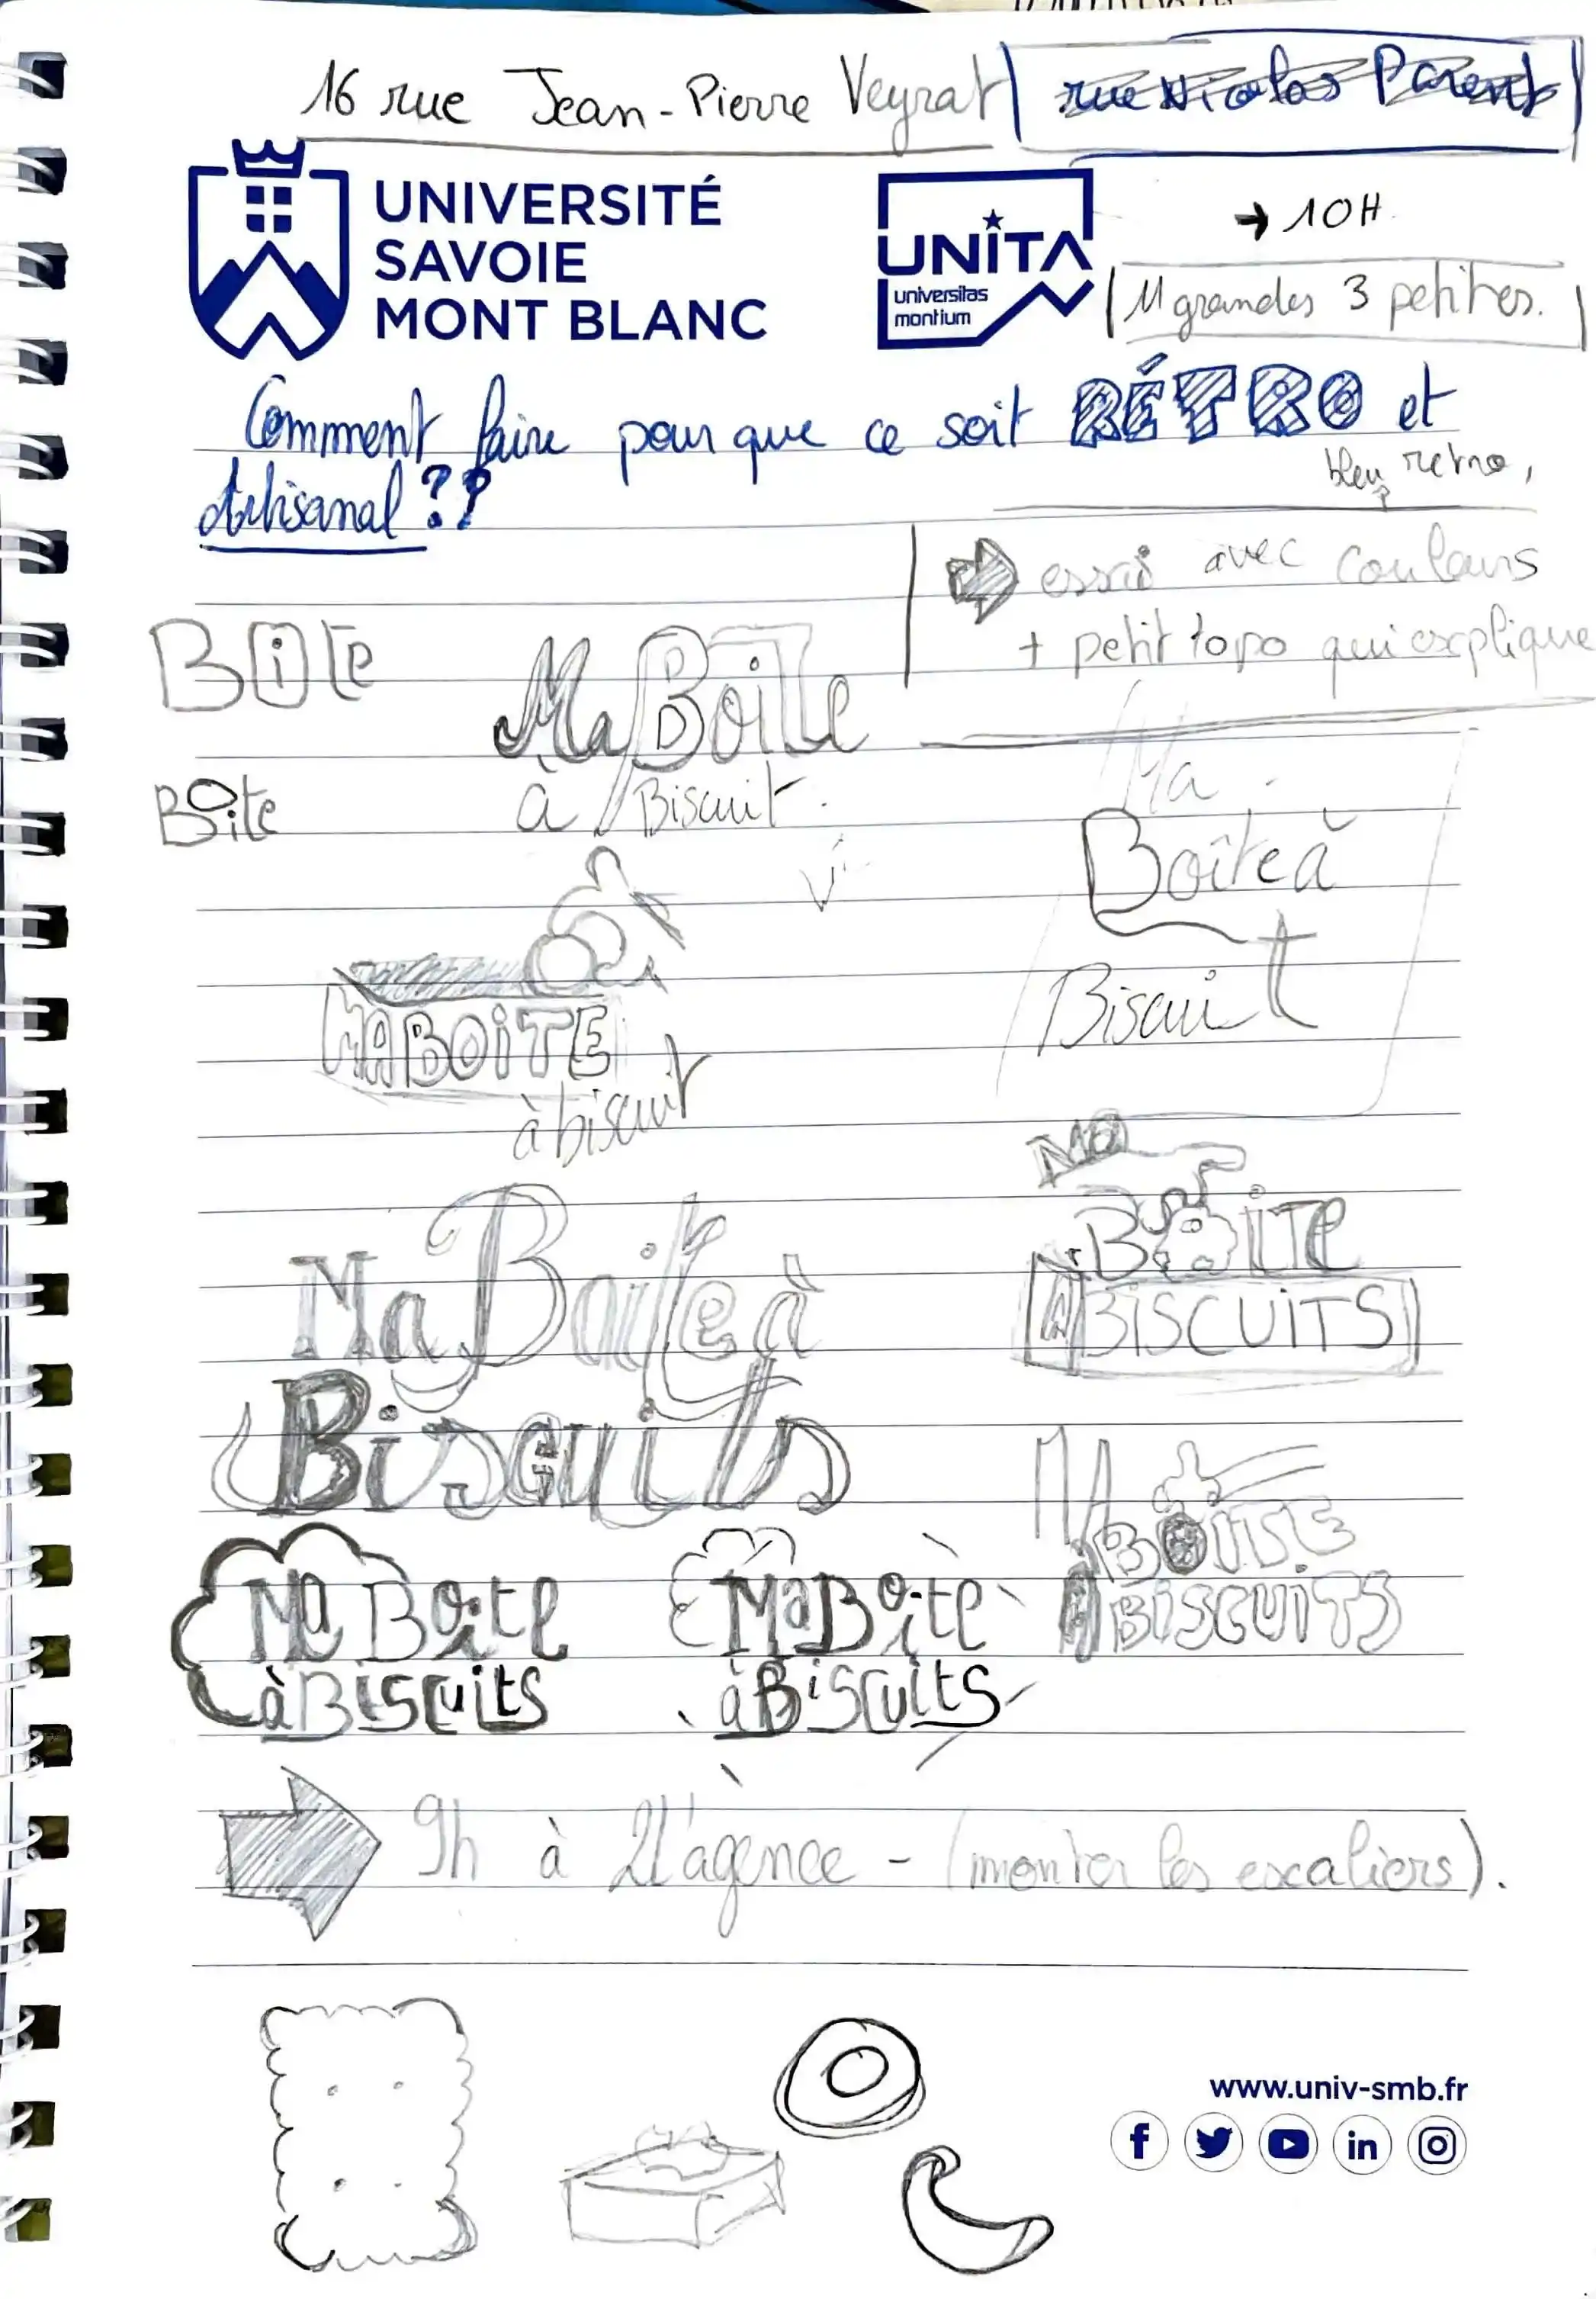 16 rue Jean-Pierre Veyrat rue Nicolas Parent
UNIVERSITÉ
SAVOIE
MONT BLANC
UNITA
universitas
montium
→ 10H
11 grandes 3 petites.
Comment faire pour que ce soit RÉTRO et
Artisanal ??
bleu retro,
?
essai avec couleurs
+ petit topo qui explique
Boite
Ma Boite
à Biscuit.
Boite
Ma
Boîte à
Biscuit
MA BOITE
à biscuit
MA
BOITE
A BISCUITS
Ma Boite à
Biscuits
MA
BOITE
A BISCUITS
Ma Boite
à Biscuits
Ma Boite
à Biscuits
9h à 2l'agence - (monter les escaliers).
www.univ-smb.fr
f
in